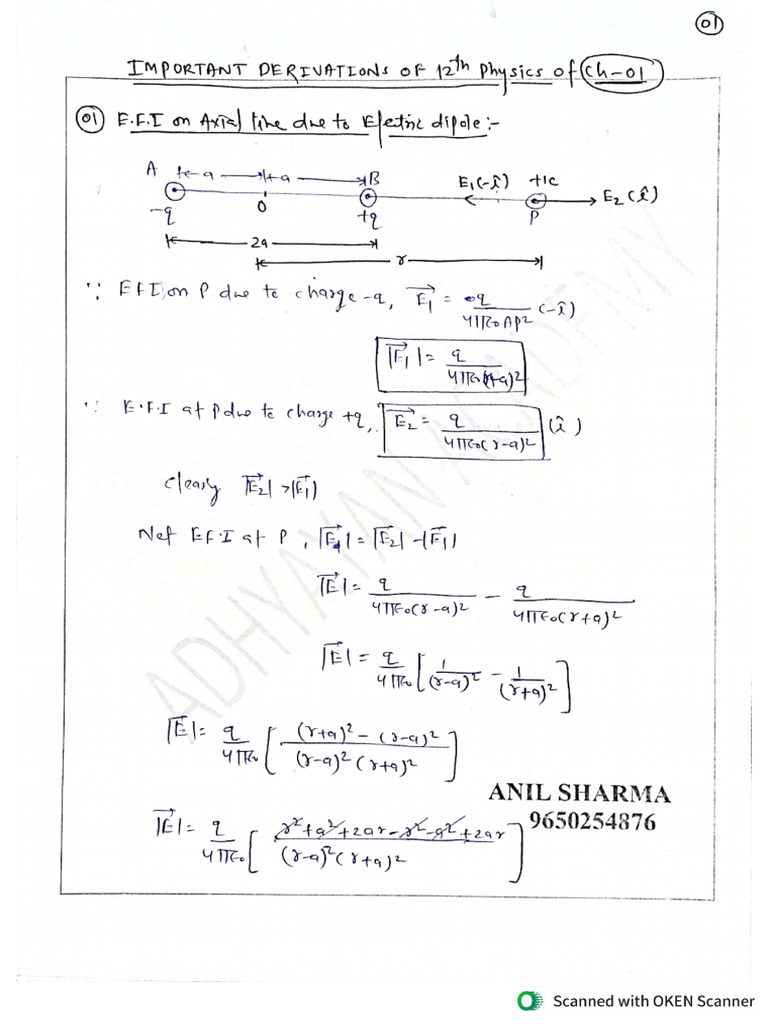 01
IMPORTANT DERIVATIONS OF 12th Physics of Ch-01
01 E.F.I on Axial line due to Electric dipole:-
A a a B E₁(-î) +1C E₂(î)
-q O +q P
2a
r
∵ EFI on P due to charge -q, E₁⃗ = q/4πε₀AP² (-î)
|E₁⃗| = q/4πε₀(r+a)²
∵ E.F.I at P due to charge +q, E₂⃗ = q/4πε₀(r-a)² (î)
clealy |E₂⃗| > |E₁⃗|
Net E.F.I at P, |E⃗| = |E₂⃗| - |E₁⃗|
|E⃗| = q/4πε₀(r-a)² - q/4πε₀(r+a)²
|E⃗| = q/4πε₀ [1/(r-a)² - 1/(r+a)²]
|E⃗| = q/4πε₀ [(r+a)² - (r-a)²/(r-a)²(r+a)²]
ANIL SHARMA
9650254876
|E⃗| = q/4πε₀ [r²+a²+2ar-r²-a²+2ar/(r-a)²(r+a)²]
ADHYAYAN ACADEMY
Scanned with OKEN Scanner